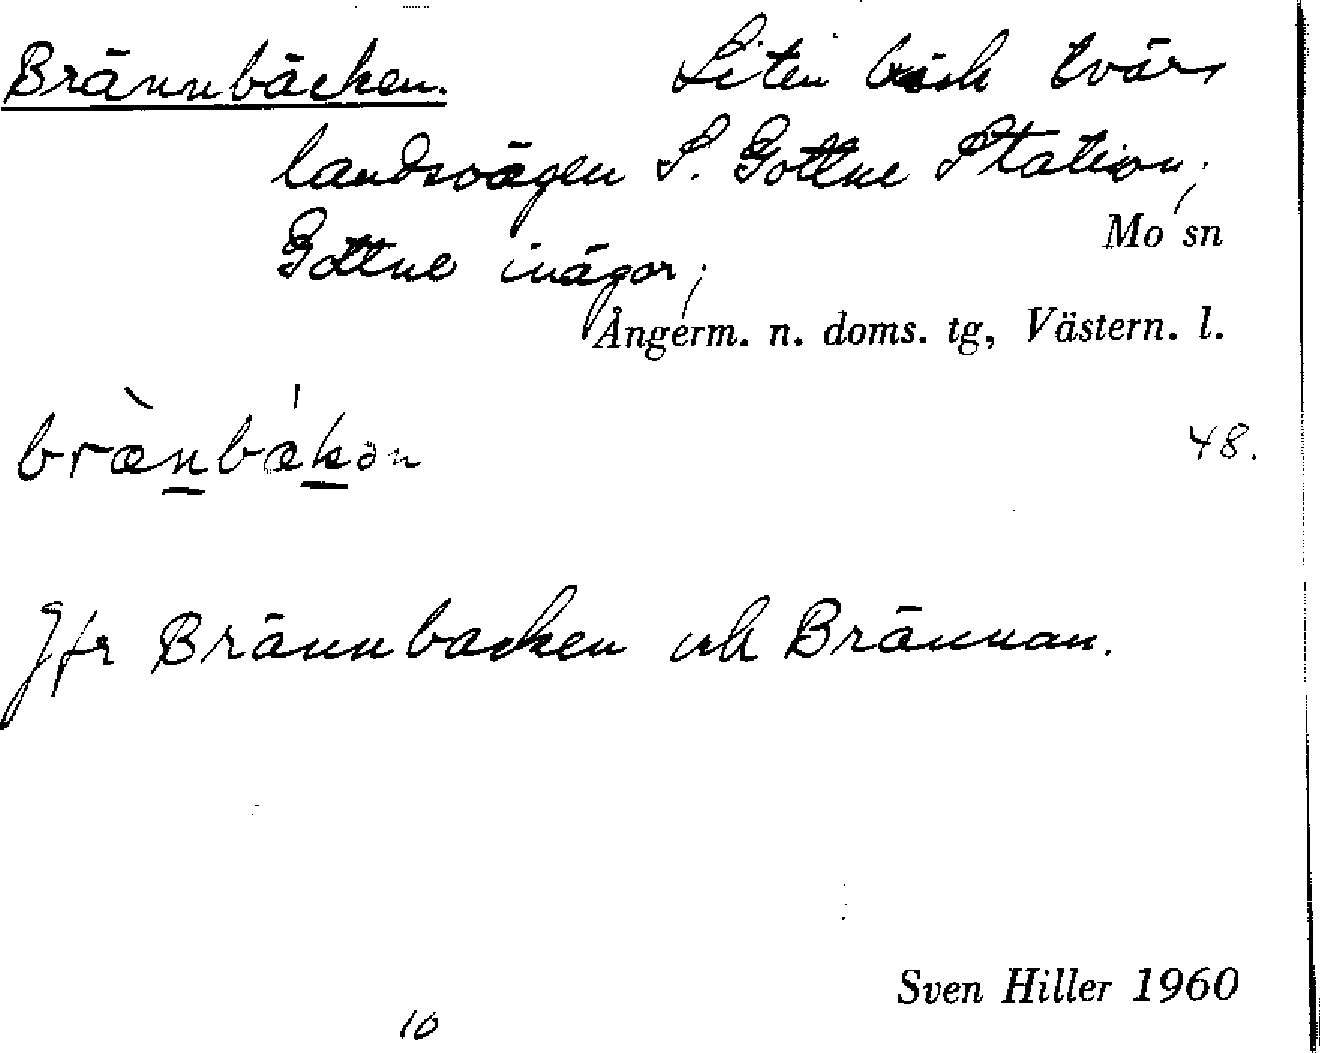 Brännbäcken. Liten bäck tvärs
landsvägen S. Gottne Station;
Mo sn
Gottne inägor;
Ångerm. n. doms. tg, Västern. l.
bræ̀nbækən
48.
Jfr Brännbacken och Brännan.
Sven Hiller 1960
10